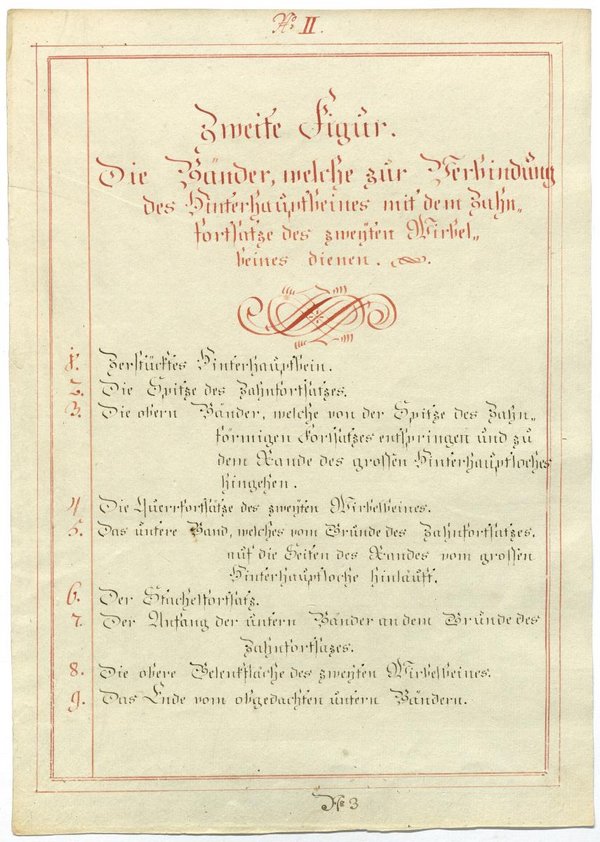 No. II.
Zweite Figur.
Die Bänder, welche zür Verbindüng
des Hinterhauptbeines mit dem Zahn„
fortsatze des zweyten Wirbel„
beines dienen.
1. Zerstücktes Hinterhauptbein.
2. Die Spitze des Zahnfortsatzes.
3. Die obern Bänder, welche von der Spitze des Zahn„
förmigen Fortsatzes entspringen und zu
dem Rande des grossen Hinterhauptloches
hingehen.
4. Die Querrfortsätze des zweyten Wirbelbeines.
5. Das üntere Band, welches vom Gründe des Zahnfortsatzes.
auf die Seiten des Randes vom grossen
Hinterhauptloche hinläuft.
6. Der Stachelfortsatz.
7. Der Anfang der üntern Bänder an dem Gründe des
Zahnfortsazes.
8. Die obere Gelenkfläche des zweyten Wirbelbeines.
9. Das Ende vom obgedachten üntern Bändern.
No 3